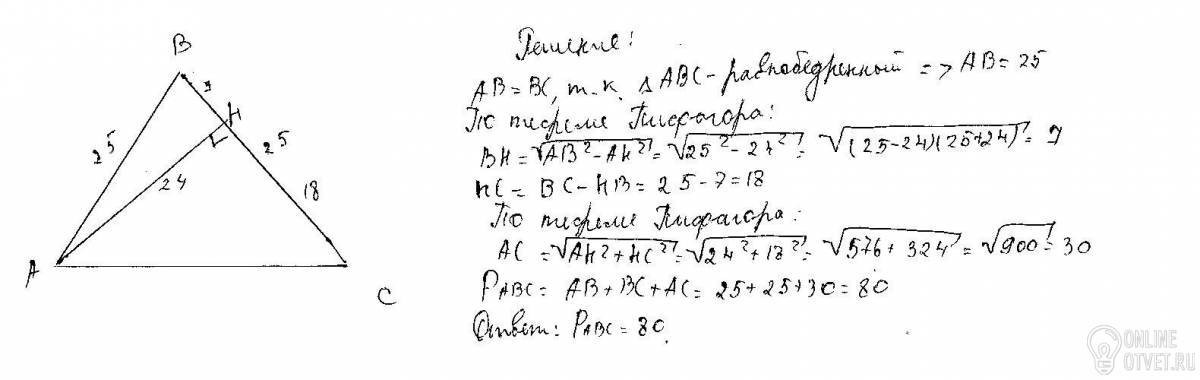 B
7
H
25
25
24
18
A
C
Решение:
AB = BC, т.к. △ABC - равнобедренный => AB = 25
По теореме Пифагора:
BH = √(AB² - AH²) = √(25² - 24²) = √((25-24)(25+24)) = 7
HC = BC - HB = 25 - 7 = 18
По теореме Пифагора:
AC = √(AH² + HC²) = √(24² + 18²) = √(576 + 324) = √900 = 30
P_ABC = AB + BC + AC = 25 + 25 + 30 = 80
Ответ: P_ABC = 80.
ONLINE
OTVET.RU